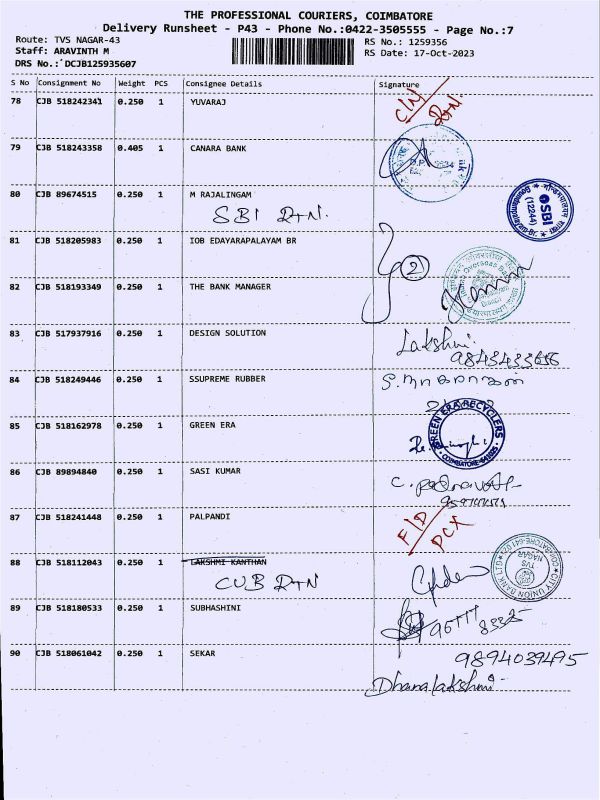 THE PROFESSIONAL COURIERS, COIMBATORE
Delivery Runsheet - P43 - Phone No.:0422-3505555 - Page No.:7
Route: TVS NAGAR-43
RS No.: 1259356
Staff: ARAVINTH M
RS Date: 17-Oct-2023
DRS No.: DCJB125935607
S No Consignment No Weight PCS Consignee Details Signature
78 CJB 518242341 0.250 1 YUVARAJ
C/N
79 CJB 518243358 0.405 1 CANARA BANK
80 CJB 89674515 0.250 1 M RAJALINGAM
SBI
SBI
(12244)
81 CJB 518205983 0.250 1 IOB EDAYARAPALAYAM BR
2
82 CJB 518193349 0.250 1 THE BANK MANAGER
83 CJB 517937916 0.250 1 DESIGN SOLUTION
Lakshmi
84 CJB 518249446 0.250 1 SSUPREME RUBBER
85 CJB 518162978 0.250 1 GREEN ERA
GREEN ERA RECYCLERS
86 CJB 89894840 0.250 1 SASI KUMAR
87 CJB 518241448 0.250 1 PALPANDI
F/D
PCX
88 CJB 518112043 0.250 1 LAKSHMI KANTHAN
CUB
CITY UNION BANK LTD
TVS
NAGAR
89 CJB 518180533 0.250 1 SUBHASHINI
90 CJB 518061042 0.250 1 SEKAR
9894039495
Dhanalakshmi